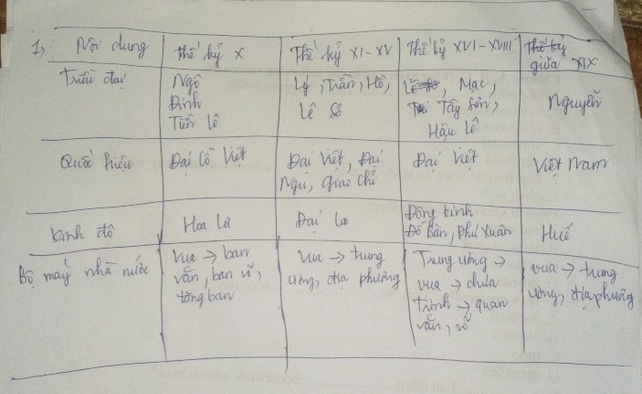 1, Nội dung
Thế kỷ X
Thế kỷ XI - XV
Thế kỷ XVI - XVIII
Thế kỷ
giữa XIX
Triều đại
Ngô
Đinh
Tiền Lê
Lý, Trần, Hồ,
Lê Sơ
Mạc,
Tây Sơn,
Hậu Lê
Nguyễn
Quốc hiệu
Đại Cồ Việt
Đại Việt, Đại
Ngu, Giao Chỉ
Đại Việt
Việt Nam
Kinh đô
Hoa Lư
Đại La
Đông Kinh
Đồ Bàn, Phú Xuân
Huế
Bộ máy nhà nước
Vua → ban
văn, ban võ,
tăng ban
Vua → trung
ương, địa phương
Trung ương →
vua → chúa
Trịnh → quan
văn, võ
vua → trung
ương, địa phương